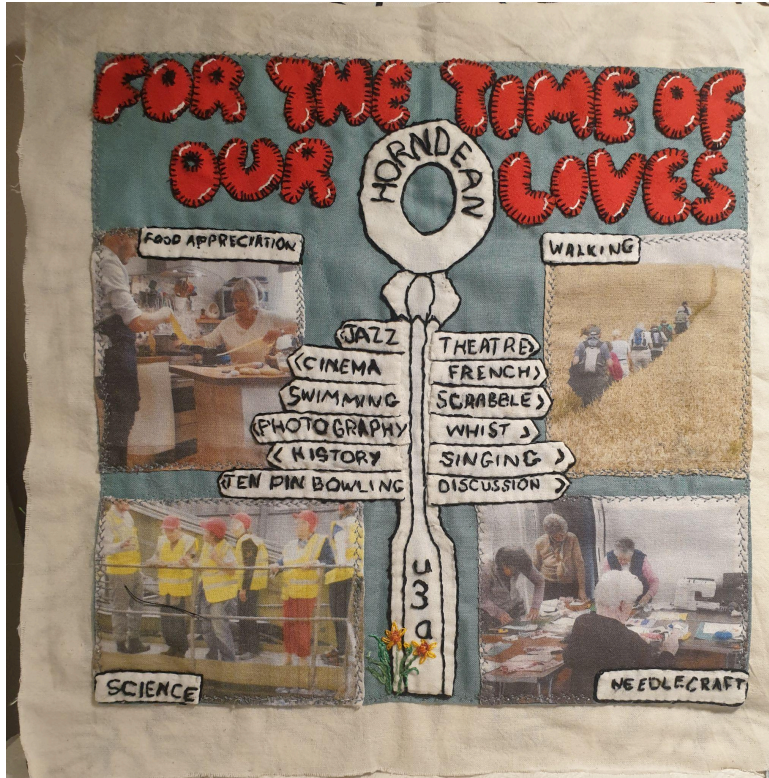 FOR THE TIME OF
OUR LIVES
HORNDEAN
FOOD APPRECIATION
WALKING
JAZZ
CINEMA
SWIMMING
PHOTOGRAPHY
HISTORY
TEN PIN BOWLING
THEATRE
FRENCH
SCRABBLE
WHIST
SINGING
DISCUSSION
u3a
SCIENCE
NEEDLECRAFT